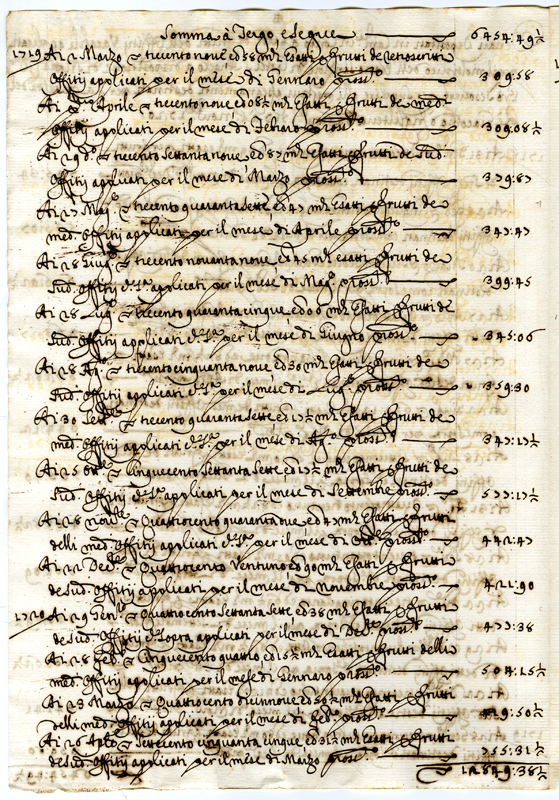 Somma à Tergo, e Segue 6454:49½
1719 Ai 2 Marzo ∇ trecento nove ed 58 mta Esatti p frutti de retroscritti
Offitij applicati per il mese di Gennaro pross.º 309:58
Ai p.º Aprile ∇ trecento nove ed 08½ mta Esatti p frutti de med.i
Offitij applicati per il mese di Febraro pross.º 309:08½
Ai 29 d.º ∇ trecento Settanta nove ed 87 mta Esatti p frutti de Sud.
Offitij applicati per il mese di Marzo pross.º 379:87
Ai 27 Mag.º ∇ trecento quaranta Sette ed 47 mta Esatti p frutti de
med. Offitij applicati per il mese di Aprile pross.º 347:47
Ai 28 Giug.º ∇ trecento novanta nove ed 45 mta esatti p frutti de
Sud. Offitij d.ª S.ª applicati per il mese di Mag.º pross.º 399:45
Ai 28 Lug.º ∇ trecento quaranta cinque ed 06 mta Esatti p frutti de
Sud. Offitij applicati d.ª S.ª per il mese di Giugno pross.º 345:06
Ai 28 Ag.º ∇ trecento cinquanta nove ed 30 mta Esatti p frutti de
Sud. Offitij applicati d.ª S.ª per il mese di Lug.º pross.º 359:30
Ai 30 Sett.e ∇ trecento quaranta Sette ed 17½ mta Esatti p frutti de
med. Offitij applicati d.ª S.ª per il mese di Ag.º pross.º 347:17½
Ai 25 Ott.e ∇ Cinquecento Settanta Sette, ed 17½ mta Esatti p frutti de
Sud. Offitij d.ª S.ª applicati per il mese di Settembre pross.º 577:17½
Ai 28 Nov.e ∇ Quattrocento quaranta due, ed 47 mta Esatti p frutti
delli med. Offitij applicati d.ª S.ª per il mese di Ott.e pross.º 442:47
Ai 22 Dec.e ∇ Quattrocento Ventuno ed 90 mta Esatti p frutti
de Sud. Offitij applicati per il mese di Novembre pross.º 421:90
1720 Ai 29 Gen.º ∇ Quattrocento Settanta Sette ed 38 mta Esatti p frutti
de Sud. Offitij d. Sopra applicati per il mese di Dec.e pross.º 477:38
Ai 28 Feb.º ∇ Cinquecento quattro, ed 15½ mta Esatti p frutti delli
med. Offitij applicati per il mese di Gennaro pross.º 504:15½
Ai 23 Marzo ∇ Quattrocento diunnove ed 50½ mta Esatti p frutti
delli med. Offitij applicati per il mese di Feb.º pross.º 419:50½
Ai 26 Aple ∇ Settecento cinquanta cinque ed 31½ mta Esatti p frutti
de Sud. Offitij applicati per il mese di Marzo pross.º 755:31½
∇ 12849:38½